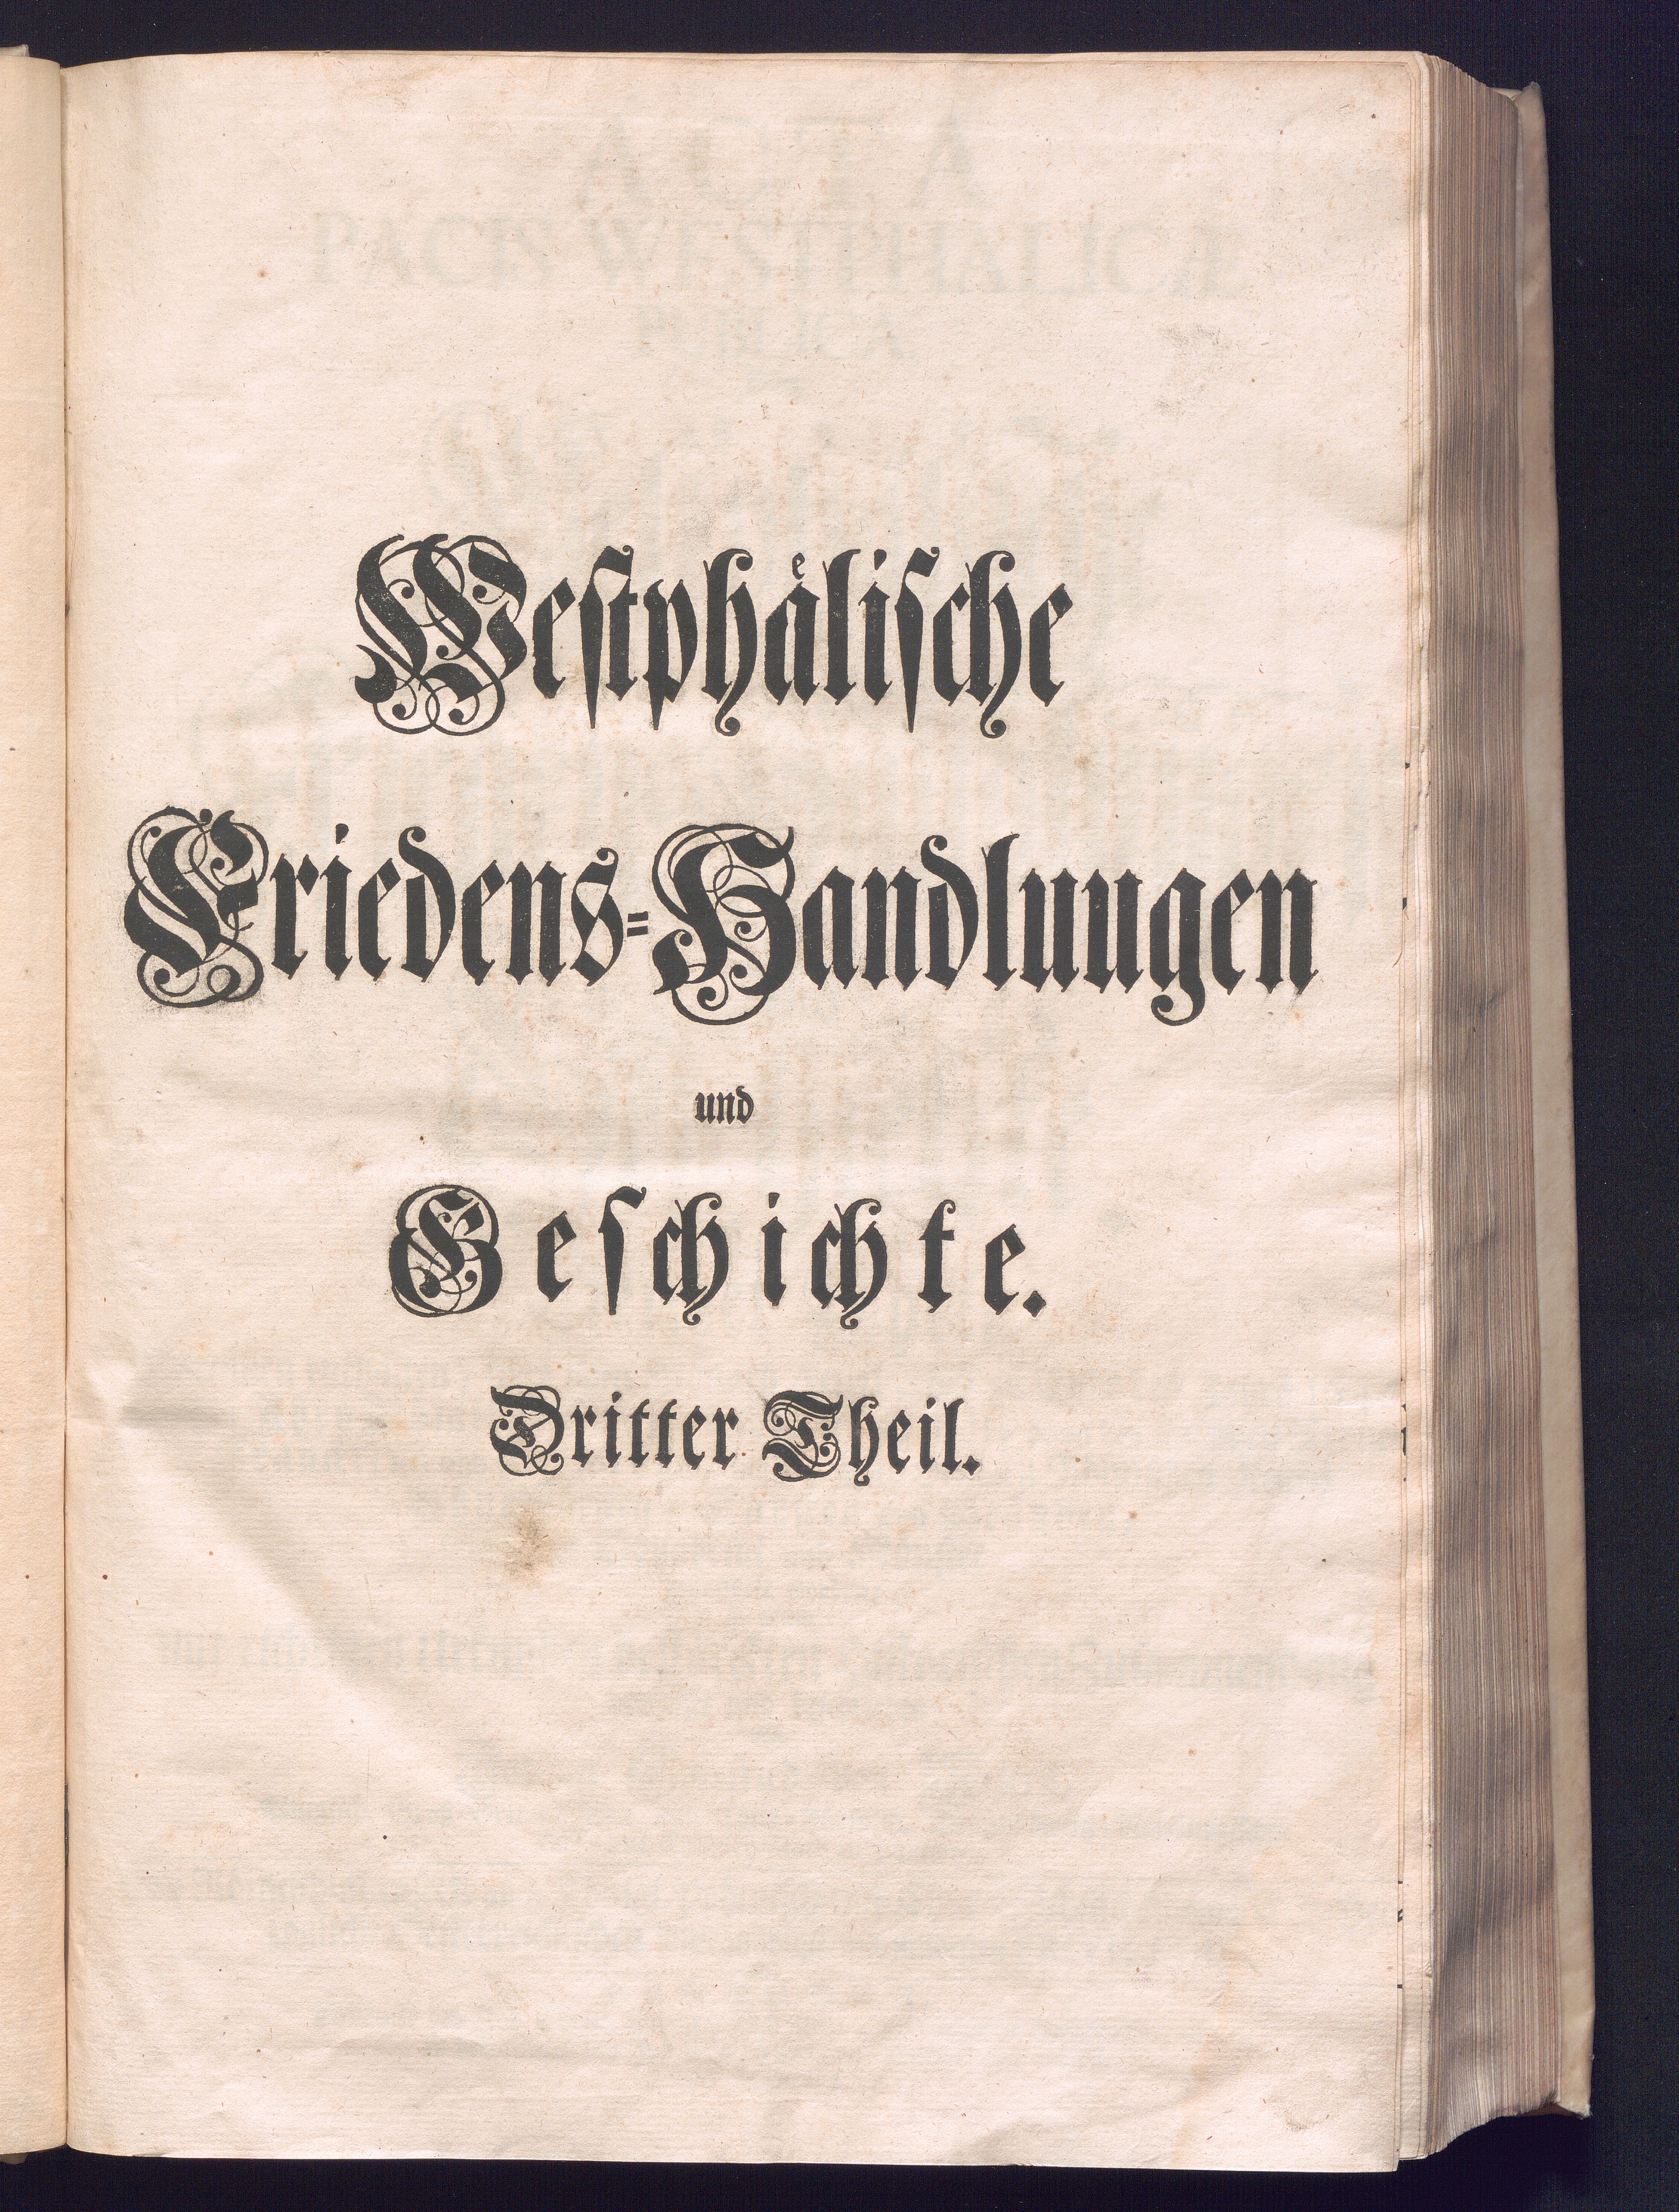 Westphälische
Friedens-Handlungen
und
Geschichte.
Dritter Theil.